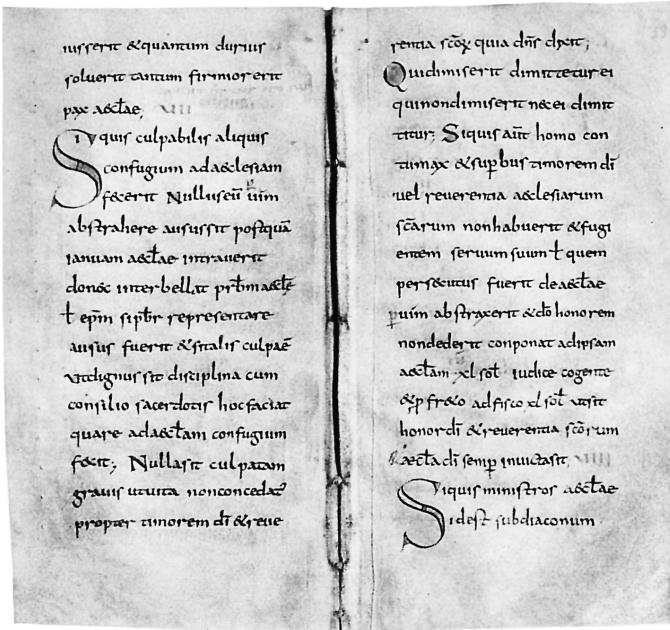 iusserit & quantum durius
soluerit tantum firmior erit
pax aeccłae,
VIII
Si quis culpabilis aliquis
confugium ad aeclesiam
fecerit Nullus eū uim
abstrahere ausus sit postquā
ianuam aeccłae intrauerit
donec interpellat prb̄m aeccłę
ł ep̄m si pb̄r representare
ausus fuerit & si talis culpa ē
ut dignus sit disciplina cum
consilio sacerdotis hoc faciat
quare ad aeccłam confugium
fecit; Nulla sit culpa tam
grauis ut uita non concedat᷑
propter timorem dī & reue
rentia scōꝝ quia dn̄s dixit;
Qui dimiserit dimittetur ei
qui non dimiserit nec ei dimit
titur; Si quis aūt homo con
tumax & sup̱bus timorem dī
uel reuerentia aeclesiarum
scārum non habuerit & fugi
entem seruum suum ł quem
persecutus fuerit de aeccłae
p̱ uim abstraxerit & dō honorem
non dederit conponat ad ipsam
aeccłam xl soł iudice cogente
& p̱ fredo ad fisco xl soł ut sit
honor dī & reuerentia scōrum
& aeccła dī semp̱ inuicta sit,
VIIII
Si quis ministros aeccłae
id est subdiaconum